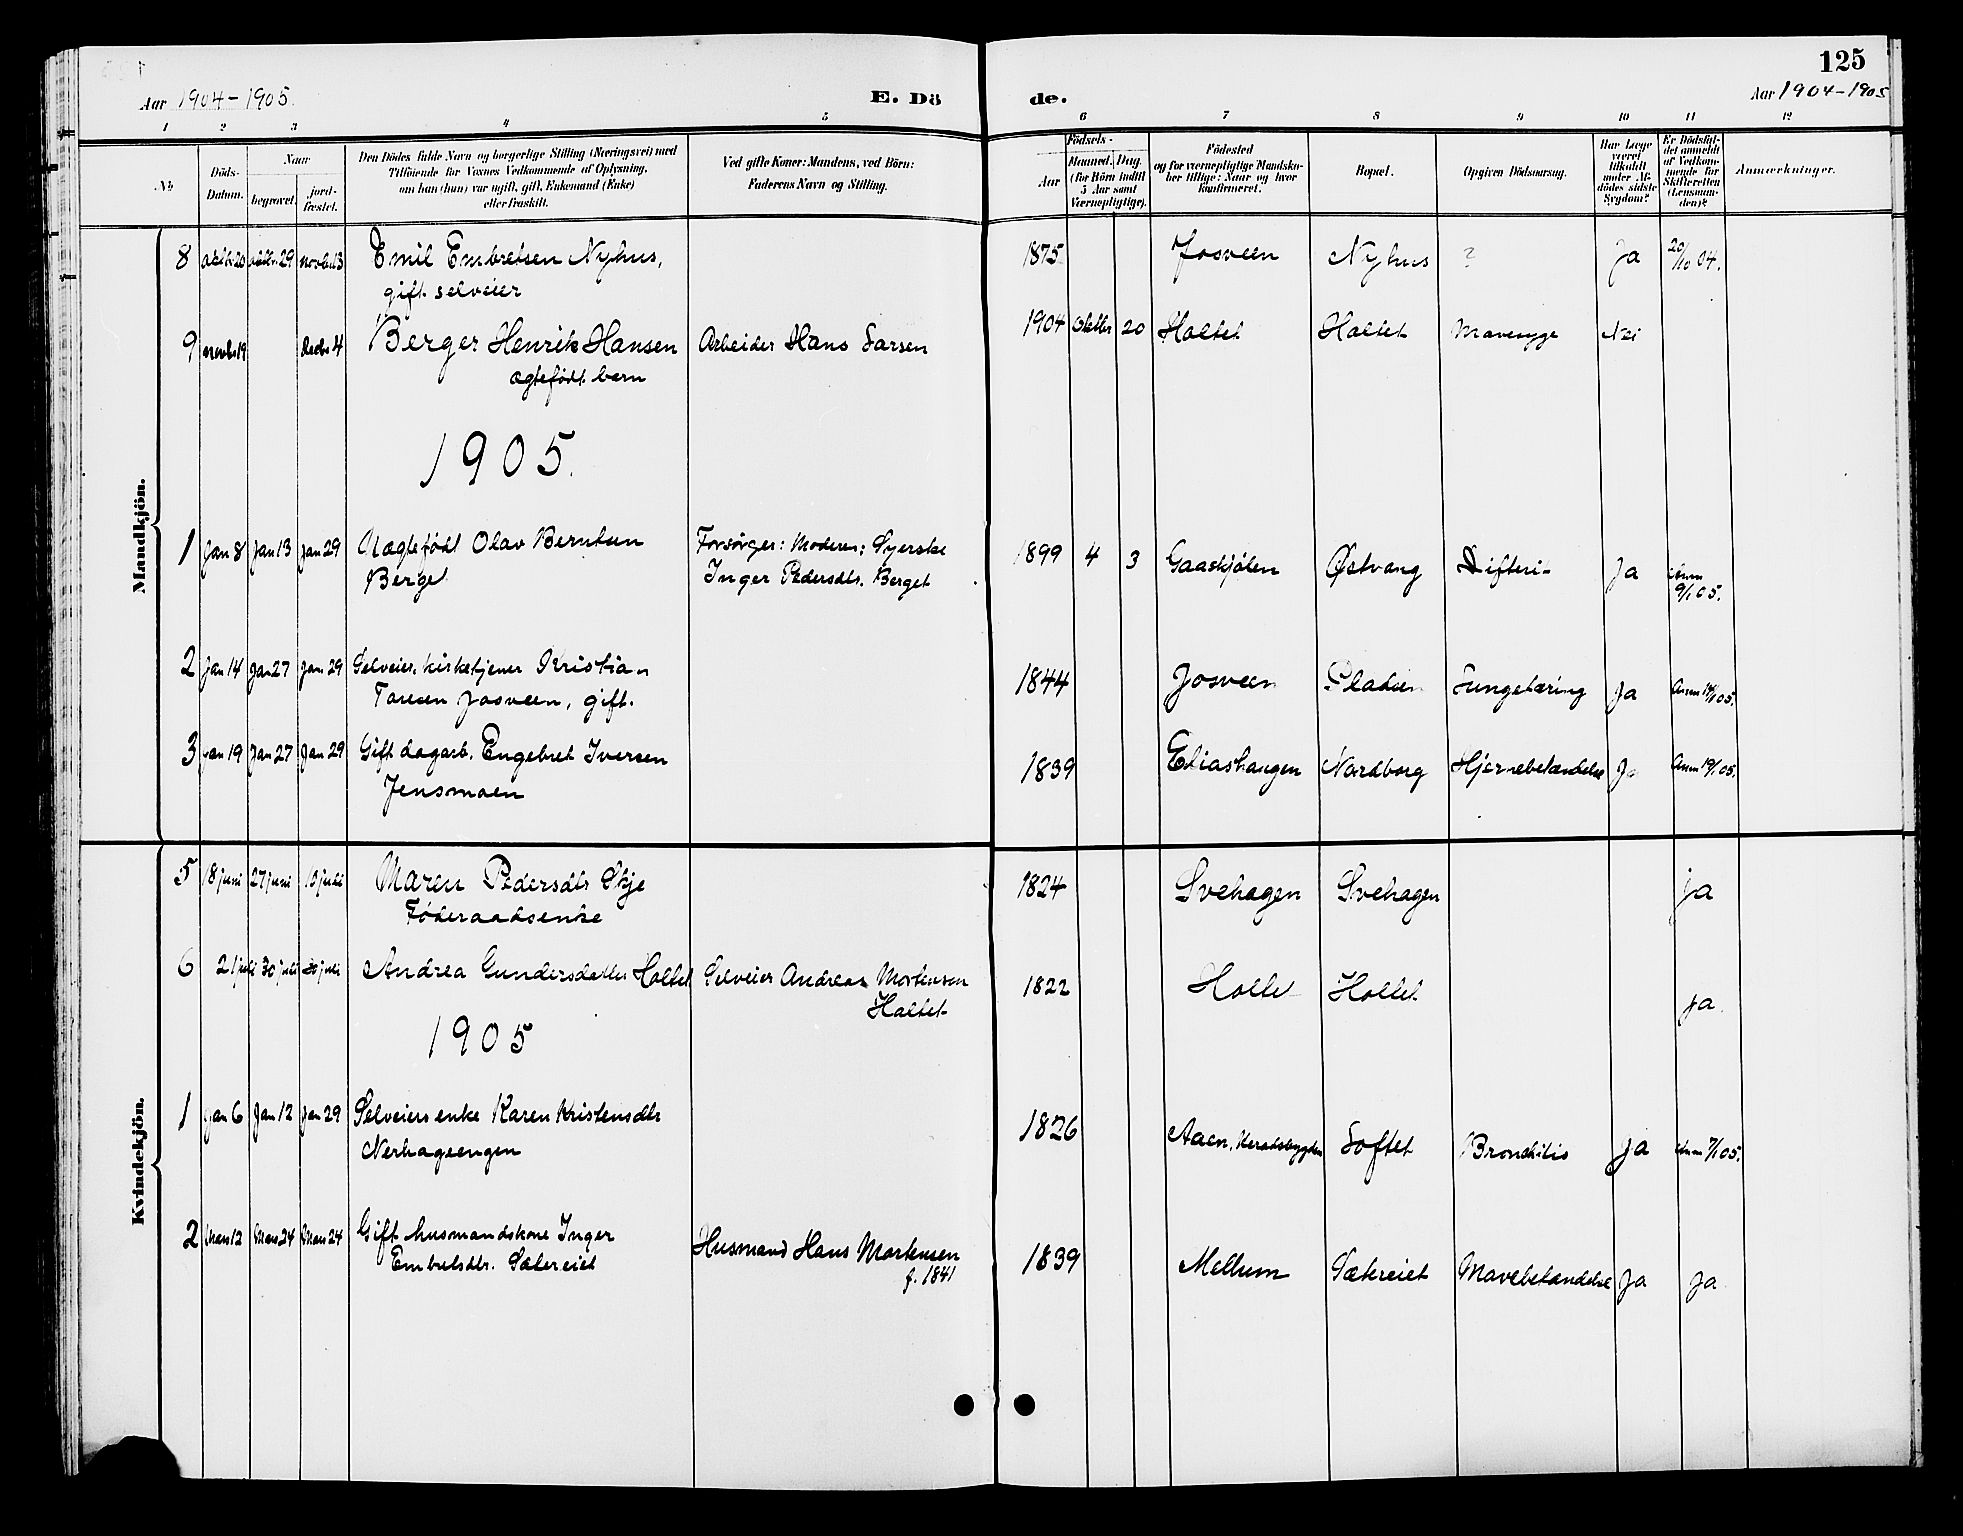 125
Aar 1904-1905
E. Dö
de.
Aar 1904-1905
1 2 3 4 5 6 7 8 9 10 11 12
No
Döds-
Datum.
Naar
begravet.
jord-
fæstet.
Den Dödes fulde Navn og borgerlige Stilling (Næringsvei) med
Tilföiende for Voxnes Vedkommende af Oplysning,
om han (hun) var ugift, gift, Enkemand (Enke)
eller fraskilt.
Ved gifte Koner: Mandens, ved Börn:
Faderens Navn og Stilling.
Födsels-
Aar
Maaned. Dag.
(for Börn indtil
5 Aar samt
Værnepligtige).
Födested
og for værnepligtige Mandska-
ber tillige: Naar og hvor
konfirmeret.
Bopæl.
Opgiven Dödsaarsag.
Har Læge
været
tilkaldt
under Af-
dödes sidste
Sygdom?
Er Dödsfal-
det anmeldt
af Vedkom-
mende for
Skifteretten
(Lensman-
den)?
Anmærkninger.
Mandkjön.
8 oktbr 20 oktbr. 29 novbr 13 Emil Embretsen Nyhus, 1875 Josveen Nyhus ? Ja 20/10 04.
gift selveier
9 novbr 19 decbr 4 Berger Henrik Hansen Arbeider Hans Larsen 1904 oktbr 20 Holtet Holtet Mavesyge Nei
ægtefødt barn
1905.
1 Jan 8 Jan 13 Jan 29 Uægtefødt Olav Berntsen Forsørger: Moderen: Syerske 1899 4 3 Gaaskjølen Østvang Difteri Ja Anm
Berget Inger Pedersdtr. Berget 9/1 05.
2 Jan 14 Jan 27 Jan 29 Selveier, kirketjener Kristian 1844 Josveen Pladsen Lungetæring Ja Anm 14/1 05.
Josveen, gift.
3 Jan 19 Jan 27 Jan 29 Gift dagarb. Engebret Iversen 1839 Eliashaugen Nordborg Hjernebetændelse Ja Anm 19/1 05.
Jensmoen
Kvindekjön.
5 18 juni 27 juni juli Maren Pedersdtr Skje 1824 Svehagen Svehagen ja
Føderaadsenke
6 21 juli 30 juli 30 juli Andrea Gundersdatter Holtet Selveier Andreas Mortensen 1822 Holtet Holtet ja
Holtet
1905
1 Jan 6 Jan 12 Jan 29 Selveiers enke Karen Kristensdtr 1826 Aaen, Loftet Bronchitis Ja Anm 7/1 05.
Nerhagsengen
2 Mars 12 Mars 24 Mars 24 Gift husmandskone Inger Husmand Hans Mortensen 1839 Mellum Sætereiet Mavebetændelse Ja ja
Embretsdtr. Sætereiet f. 1841